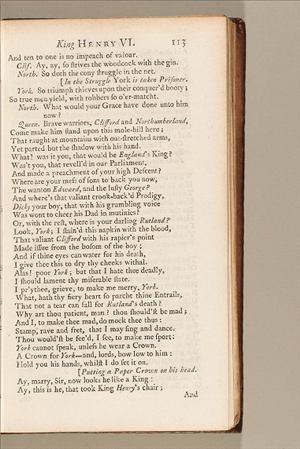 King HENRY VI. 113
And ten to one is no impeach of valour.
Clif. Ay, ay, ſo ſtrives the woodcock with the gin.
North. So doth the cony ſtruggle in the net.
[In the Struggle York is taken Priſoner.
York. So triumph thieves upon their conquer'd booty;
So true men yield, with robbers ſo o'er-matcht.
North. What would your Grace have done unto him
now?
Queen. Brave warriors, Clifford and Northumberland,
Come make him ſtand upon this mole-hill here;
That raught at mountains with out-ſtretched arms,
Yet parted but the ſhadow with his hand.
What! was it you, that would be England's King?
Was't you, that revell'd in our Parliament,
And made a preachment of your high Deſcent?
Where are your meſs of ſons to back you now,
The wanton Edward, and the luſty George?
And where's that valiant crook-back'd Prodigy,
Dicky your boy, that with his grumbling voice
Was wont to cheer his Dad in mutinies?
Or, with the reſt, where is your darling Rutland?
Look, York; I ſtain'd this napkin with the blood,
That valiant Clifford with his rapier's point
Made iſſue from the boſom of the boy:
And if thine eyes can water for his death,
I give thee this to dry thy cheeks withal.
Alas! poor York; but that I hate thee deadly,
I ſhould lament thy miſerable ſtate.
I pr'ythee, grieve, to make me merry, York.
What, hath thy fiery heart ſo parcht thine Entrails,
That not a tear can fall for Rutland's death?
Why art thou patient, man? thou ſhould'ſt be mad;
And I, to make thee mad, do mock thee thus:
Stamp, rave and fret, that I may ſing and dance.
Thou would'ſt be fee'd, I ſee, to make me ſport:
York cannot ſpeak, unleſs he wear a Crown.
A Crown for York—and, lords, bow low to him:
Hold you his hands, whilſt I do ſet it on.
[Putting a Paper Crown on his head.
Ay, marry, Sir, now looks he like a King:
Ay, this is he, that took King Henry's chair;
And